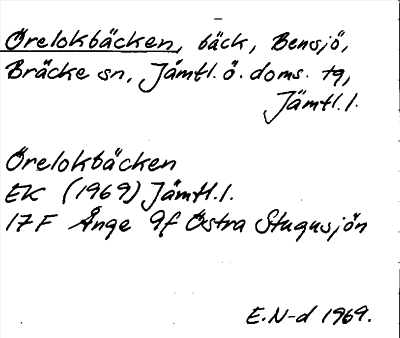 Örelokbäcken, bäck, Bensjö,
Bräcke sn, Jämtl. ö. doms. tg,
Jämtl.l.
Örelokbäcken
EK (1969) Jämtl.l.
17F Ånge 9f Östra Stugusjön
E.N-d 1969.